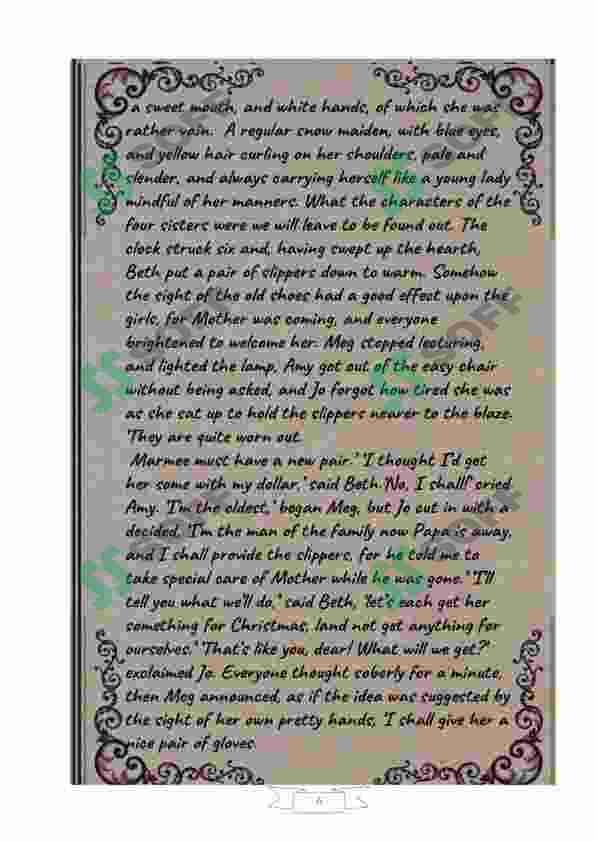 a sweet mouth, and white hands, of which she was
rather vain. A regular snow maiden, with blue eyes,
and yellow hair curling on her shoulders, pale and
slender, and always carrying herself like a young lady
mindful of her manners. What the characters of the
four sisters were we will leave to be found out. The
clock struck six and, having swept up the hearth,
Beth put a pair of slippers down to warm. Somehow
the sight of the old shoes had a good effect upon the
girls, for Mother was coming, and everyone
brightened to welcome her. Meg stopped lecturing,
and lighted the lamp, Amy got out of the easy chair
without being asked, and Jo forgot how tired she was
as she sat up to hold the slippers nearer to the blaze.
'They are quite worn out.
Marmee must have a new pair.' 'I thought I'd get
her some with my dollar,' said Beth.'No, I shall!' cried
Amy. 'I'm the oldest,' began Meg, but Jo cut in with a
decided, 'I'm the man of the family now Papa is away,
and I shall provide the slippers, for he told me to
take special care of Mother while he was gone.' 'I'll
tell you what we'll do,' said Beth, 'let's each get her
something for Christmas, land not get anything for
ourselves.' 'That's like you, dear! What will we get?'
exclaimed Jo. Everyone thought soberly for a minute,
then Meg announced, as if the idea was suggested by
the sight of her own pretty hands, 'I shall give her a
nice pair of gloves.
SOFF
SOFF
SOFF
SOFF
SOFF
SOFF